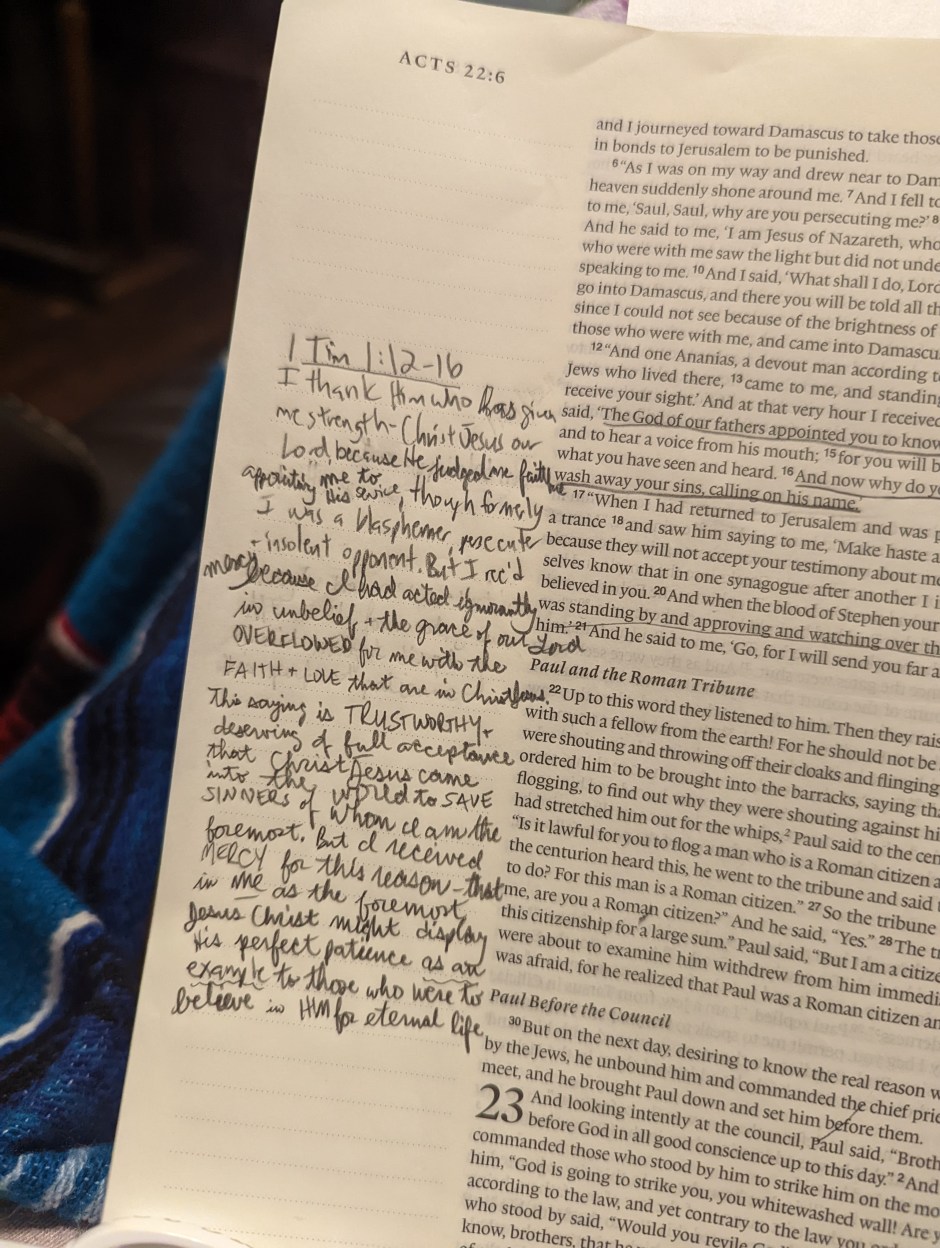 ACTS 22:6
1 Tim 1:12-16
I thank Him who has given
me strength - Christ Jesus our
Lord, because He judged me faithful
appointing me to
His service, though formerly
I was a blasphemer, persecute
+ insolent opponent. But I rec'd
mercy because I had acted ignorantly
in unbelief + the grace of our Lord
OVERFLOWED for me with the
FAITH + LOVE that are in Christ Jesus.
This saying is TRUSTWORTHY +
deserving of full acceptance
that Christ Jesus came
into the world to SAVE
SINNERS of whom I am the
foremost. But I received
MERCY for this reason - that
in me as the foremost
Jesus Christ might display
His perfect patience as an
example to those who were to
believe in HIM for eternal life.
and I journeyed toward Damascus to take those
in bonds to Jerusalem to be punished.
6 “As I was on my way and drew near to Dam
heaven suddenly shone around me. 7 And I fell to
to me, ‘Saul, Saul, why are you persecuting me?’ 8
And he said to me, ‘I am Jesus of Nazareth, who
who were with me saw the light but did not unde
speaking to me. 10 And I said, ‘What shall I do, Lord
go into Damascus, and there you will be told all th
since I could not see because of the brightness of
those who were with me, and came into Damascu
12 “And one Ananias, a devout man according t
Jews who lived there, 13 came to me, and standing
receive your sight.’ And at that very hour I received
said, ‘The God of our fathers appointed you to know
and to hear a voice from his mouth; 15 for you will b
what you have seen and heard. 16 And now why do yo
wash away your sins, calling on his name.’
17 “When I had returned to Jerusalem and was p
a trance 18 and saw him saying to me, ‘Make haste a
because they will not accept your testimony about me
selves know that in one synagogue after another I i
believed in you. 20 And when the blood of Stephen your
was standing by and approving and watching over th
him.’ 21 And he said to me, ‘Go, for I will send you far a
Paul and the Roman Tribune
22 Up to this word they listened to him. Then they rais
with such a fellow from the earth! For he should not be
were shouting and throwing off their cloaks and flinging
ordered him to be brought into the barracks, saying tha
flogging, to find out why they were shouting against hi
had stretched him out for the whips,2 Paul said to the cen
“Is it lawful for you to flog a man who is a Roman citizen a
the centurion heard this, he went to the tribune and said t
to do? For this man is a Roman citizen.” 27 So the tribune
me, are you a Roman citizen?” And he said, “Yes.” 28 The tr
this citizenship for a large sum.” Paul said, “But I am a citize
were about to examine him withdrew from him immedi
was afraid, for he realized that Paul was a Roman citizen an
Paul Before the Council
30 But on the next day, desiring to know the real reason w
by the Jews, he unbound him and commanded the chief prie
meet, and he brought Paul down and set him before them.
23 And looking intently at the council, Paul said, “Broth
before God in all good conscience up to this day.” 2 And
commanded those who stood by him to strike him on the mo
him, “God is going to strike you, you whitewashed wall! Are y
according to the law, and yet contrary to the law you
who stood by said, “Would you revile
know, brothers, that he